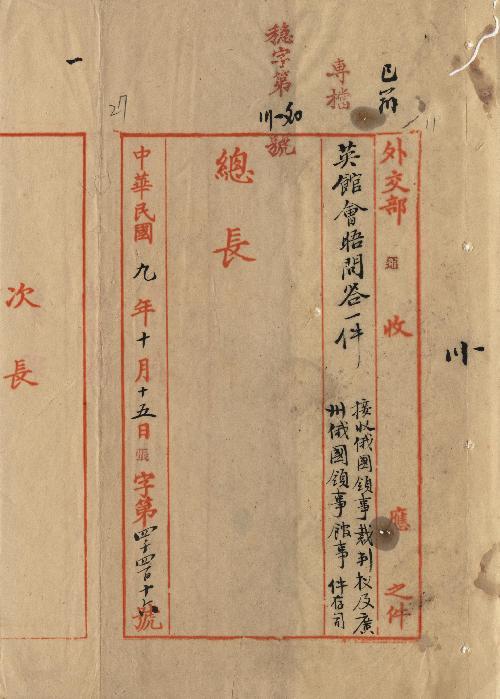 已
穩字第
號
專檔
27
11
外交部 收 應 之件
英館會晤問答一件
接收俄國領事裁判权及廣
州俄國領事館事 件存司
總長
中華民國九年十月十五日 字第四千四百十六號
次長
一